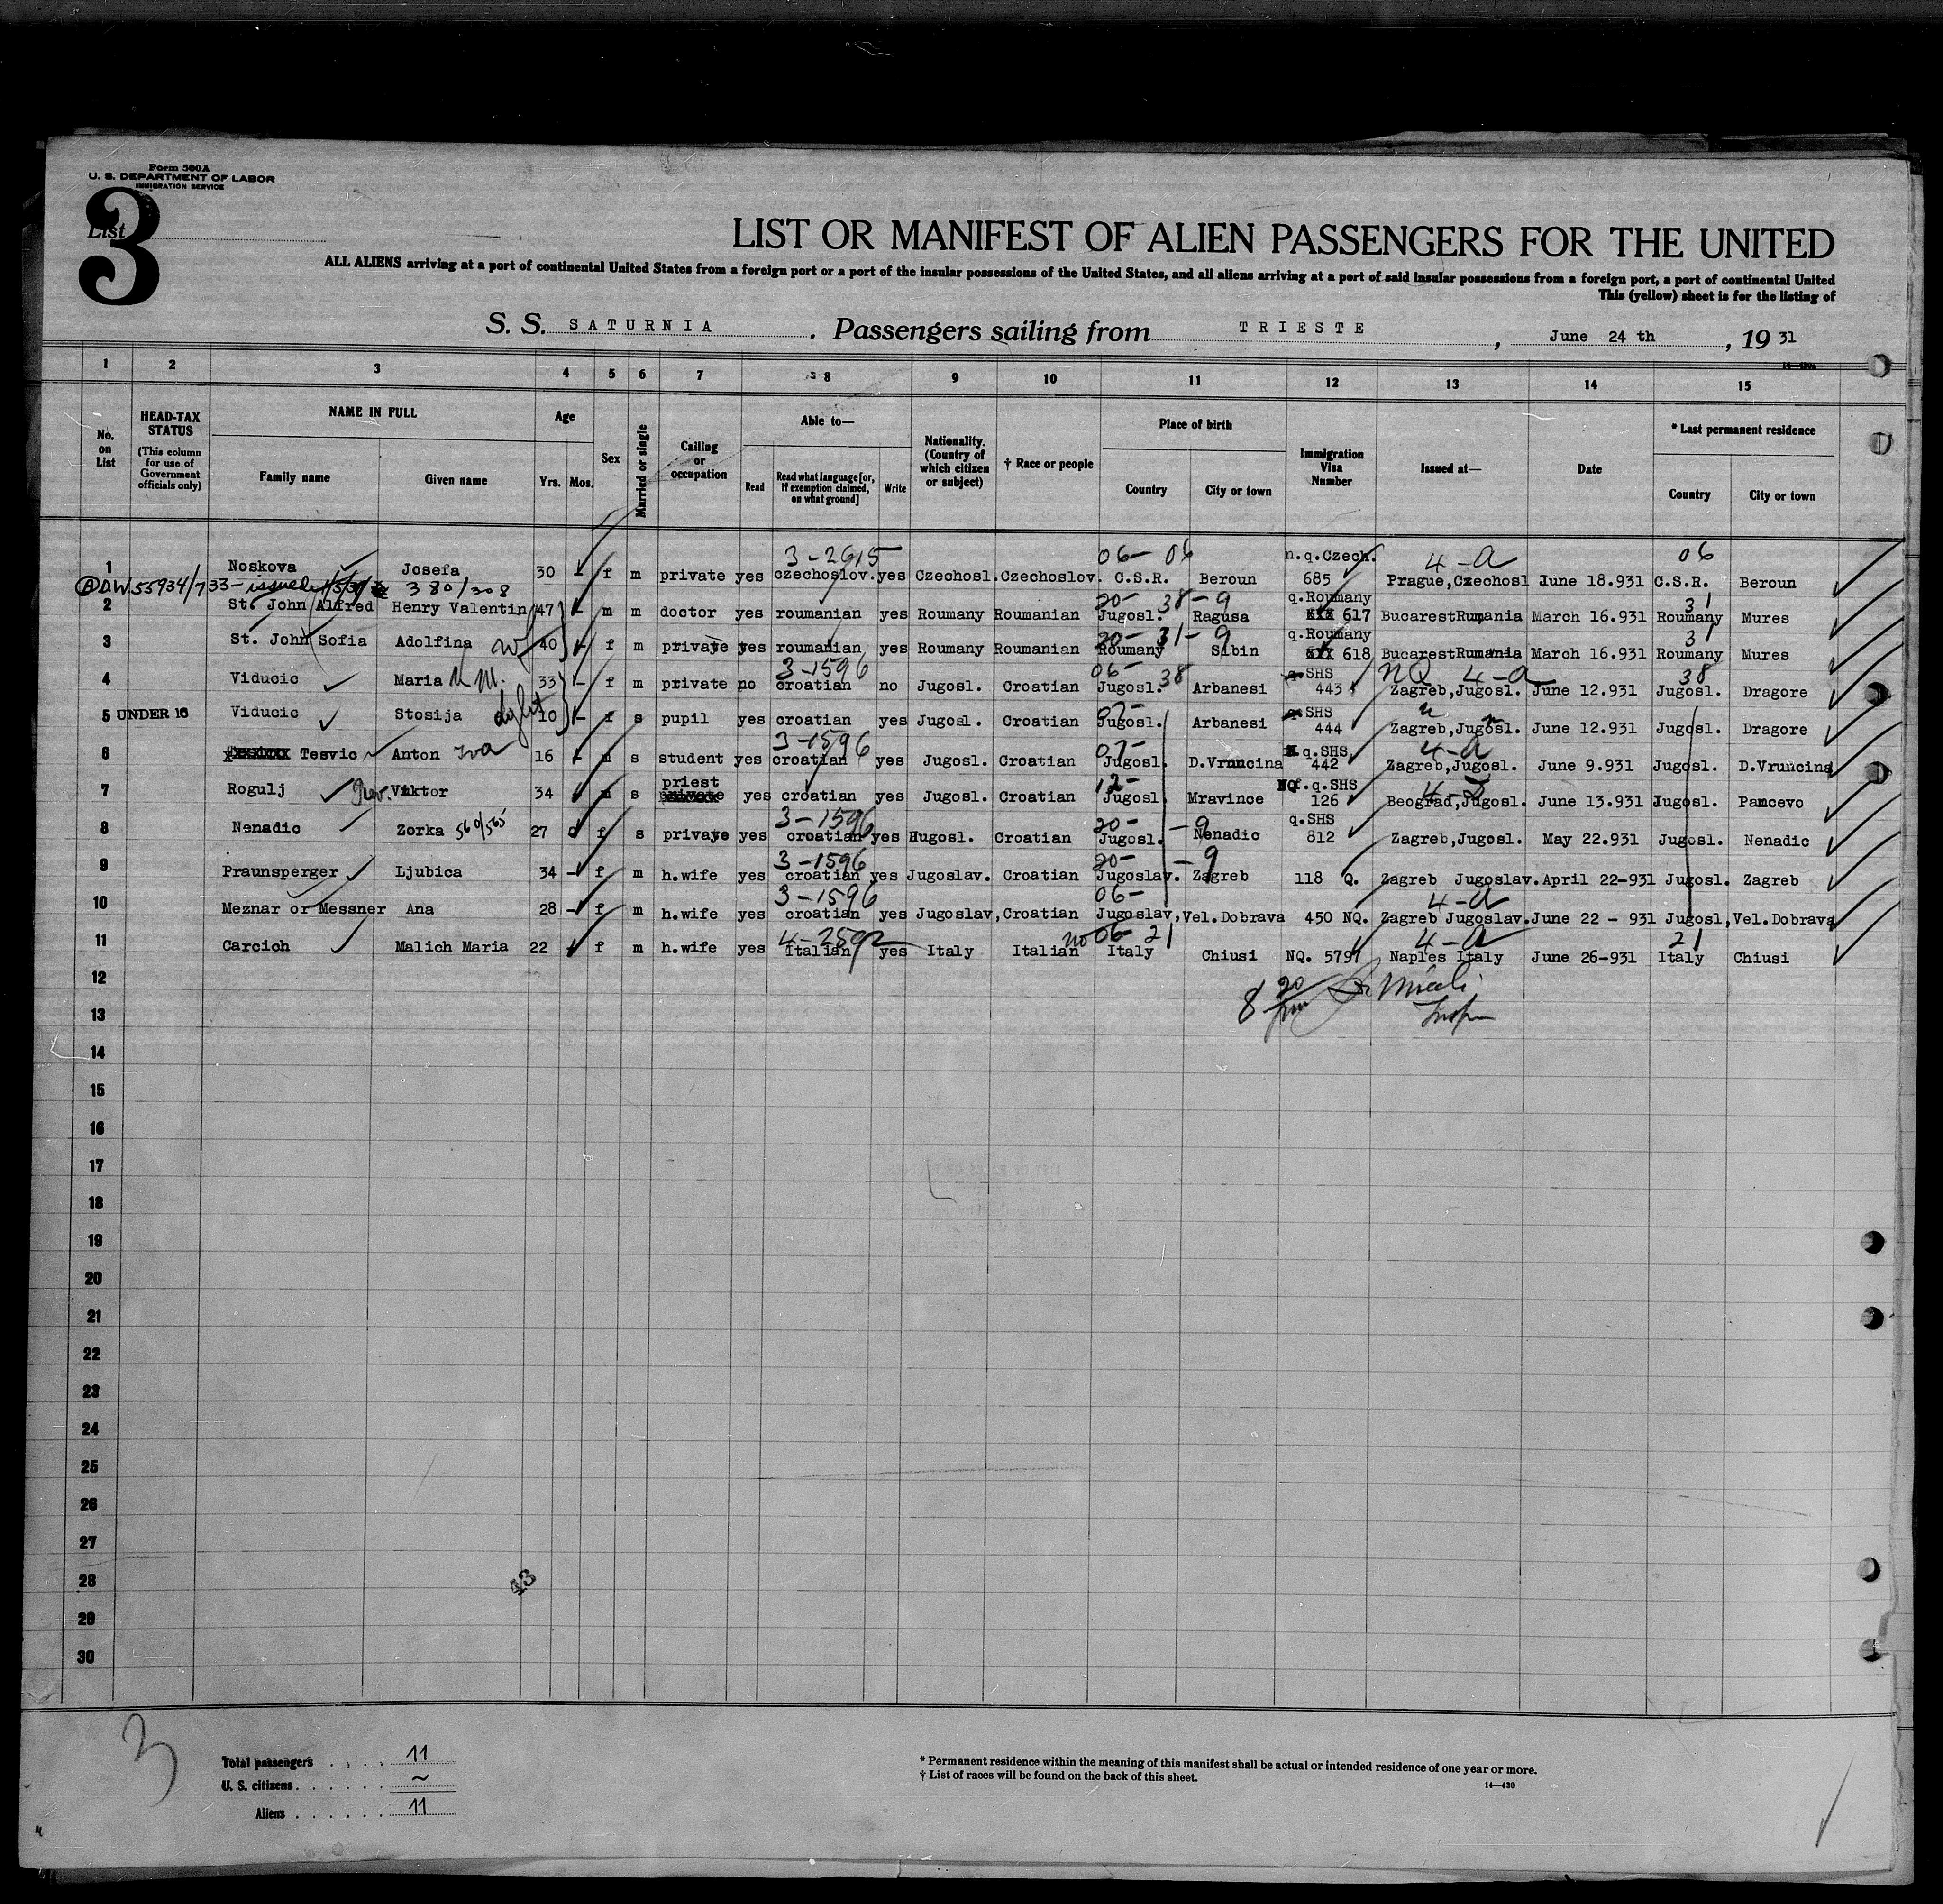 Form 500A
U. S. DEPARTMENT OF LABOR
IMMIGRATION SERVICE
List 3
LIST OR MANIFEST OF ALIEN PASSENGERS FOR THE UNITED
ALL ALIENS arriving at a port of continental United States from a foreign port or a port of the insular possessions of the United States, and all aliens arriving at a port of said insular possessions from a foreign port, a port of continental United
This (yellow) sheet is for the listing of
S. S. SATURNIA . Passengers sailing from TRIESTE , June 24 th , 19 31
1 2 3 4 5 6 7 8 9 10 11 12 13 14 15
No. on List
HEAD-TAX STATUS
(This column for use of Government officials only)
NAME IN FULL
Family name Given name
Age
Yrs. Mos.
Sex
Married or single
Calling or occupation
Able to—
Read Read what language [or, if exemption claimed, on what ground] Write
Nationality. (Country of which citizen or subject)
† Race or people
Place of birth
Country City or town
Immigration Visa Number
Issued at—
Date
* Last permanent residence
Country City or town
3-2615 06- 06 n.q.Czech. 4-a 06
1 Noskova Josefa 30 - f m private yes czechoslov. yes Czechosl. Czechoslov. C.S.R. Beroun 685 Prague,Czechosl June 18.931 C.S.R. Beroun
55934/733- issued 380/308
20- 38-9 q.Roumany 31
2 St. John Alfred Henry Valentin 47 - m m doctor yes roumanian yes Roumany Roumanian Jugosl. Ragusa 617 Bucarest Rumania March 16.931 Roumany Mures
20- 31-9 q.Roumany 31
3 St. John Sofia Adolfina wf 40 - f m private yes roumanian yes Roumany Roumanian Roumany Sibin 618 Bucarest Rumania March 16.931 Roumany Mures
3-1596 06- 38 q.SHS NQ 4-a 38
4 Viducic Maria 33 - f m private no croatian no Jugosl. Croatian Jugosl. Arbanesi 443 Zagreb,Jugosl. June 12.931 Jugosl. Dragore
07- SHS
5 UNDER 16 Viducic Stosija 10 - f s pupil yes croatian yes Jugosl. Croatian Jugosl. Arbanesi 444 Zagreb,Jugosl. June 12.931 Jugosl. Dragore
3-1596 07- N q.SHS 4-a
6 Tesvic Anton Iva 16 - m s student yes croatian yes Jugosl. Croatian Jugosl. D.Vruncina 442 Zagreb,Jugosl. June 9.931 Jugosl. D.Vruncina
priest 12- q.SHS
7 Rogulj Rev. Viktor 34 m s private yes croatian yes Jugosl. Croatian Jugosl. Mravince 126 Beograd,Jugosl. June 13.931 Jugosl. Pancevo
3-1596 20- -9 q.SHS
8 Nenadic Zorka 560/565 27 f s private yes croatian yes Hugosl. Croatian Jugosl. Nenadic 812 Zagreb,Jugosl. May 22.931 Jugosl. Nenadic
3-1596 20- -9
9 Praunsperger Ljubica 34 - f m h.wife yes croatian yes Jugoslav. Croatian Jugoslav. Zagreb 118 Q. Zagreb Jugoslav. April 22-931 Jugosl. Zagreb
3-1596 06- 4-a
10 Meznar or Messner Ana 28 - f m h.wife yes croatian yes Jugoslav, Croatian Jugoslav, Vel.Dobrava 450 NQ. Zagreb Jugoslav. June 22 - 931 Jugosl, Vel.Dobrava
4-2592 no 06- 21 4-a 21
11 Carcich Malich Maria 22 f m h.wife yes Italian yes Italy Italian Italy Chiusi NQ. 5797 Naples Italy June 26-931 Italy Chiusi
12
8 20/pm
13
14
15
16
17
18
19
20
21
22
23
24
25
26
27
28 43
29
30
3
Total passengers . . . . 11
U. S. citizens . . . . . . ~
Aliens . . . . . . 11
* Permanent residence within the meaning of this manifest shall be actual or intended residence of one year or more.
† List of races will be found on the back of this sheet.
14—430